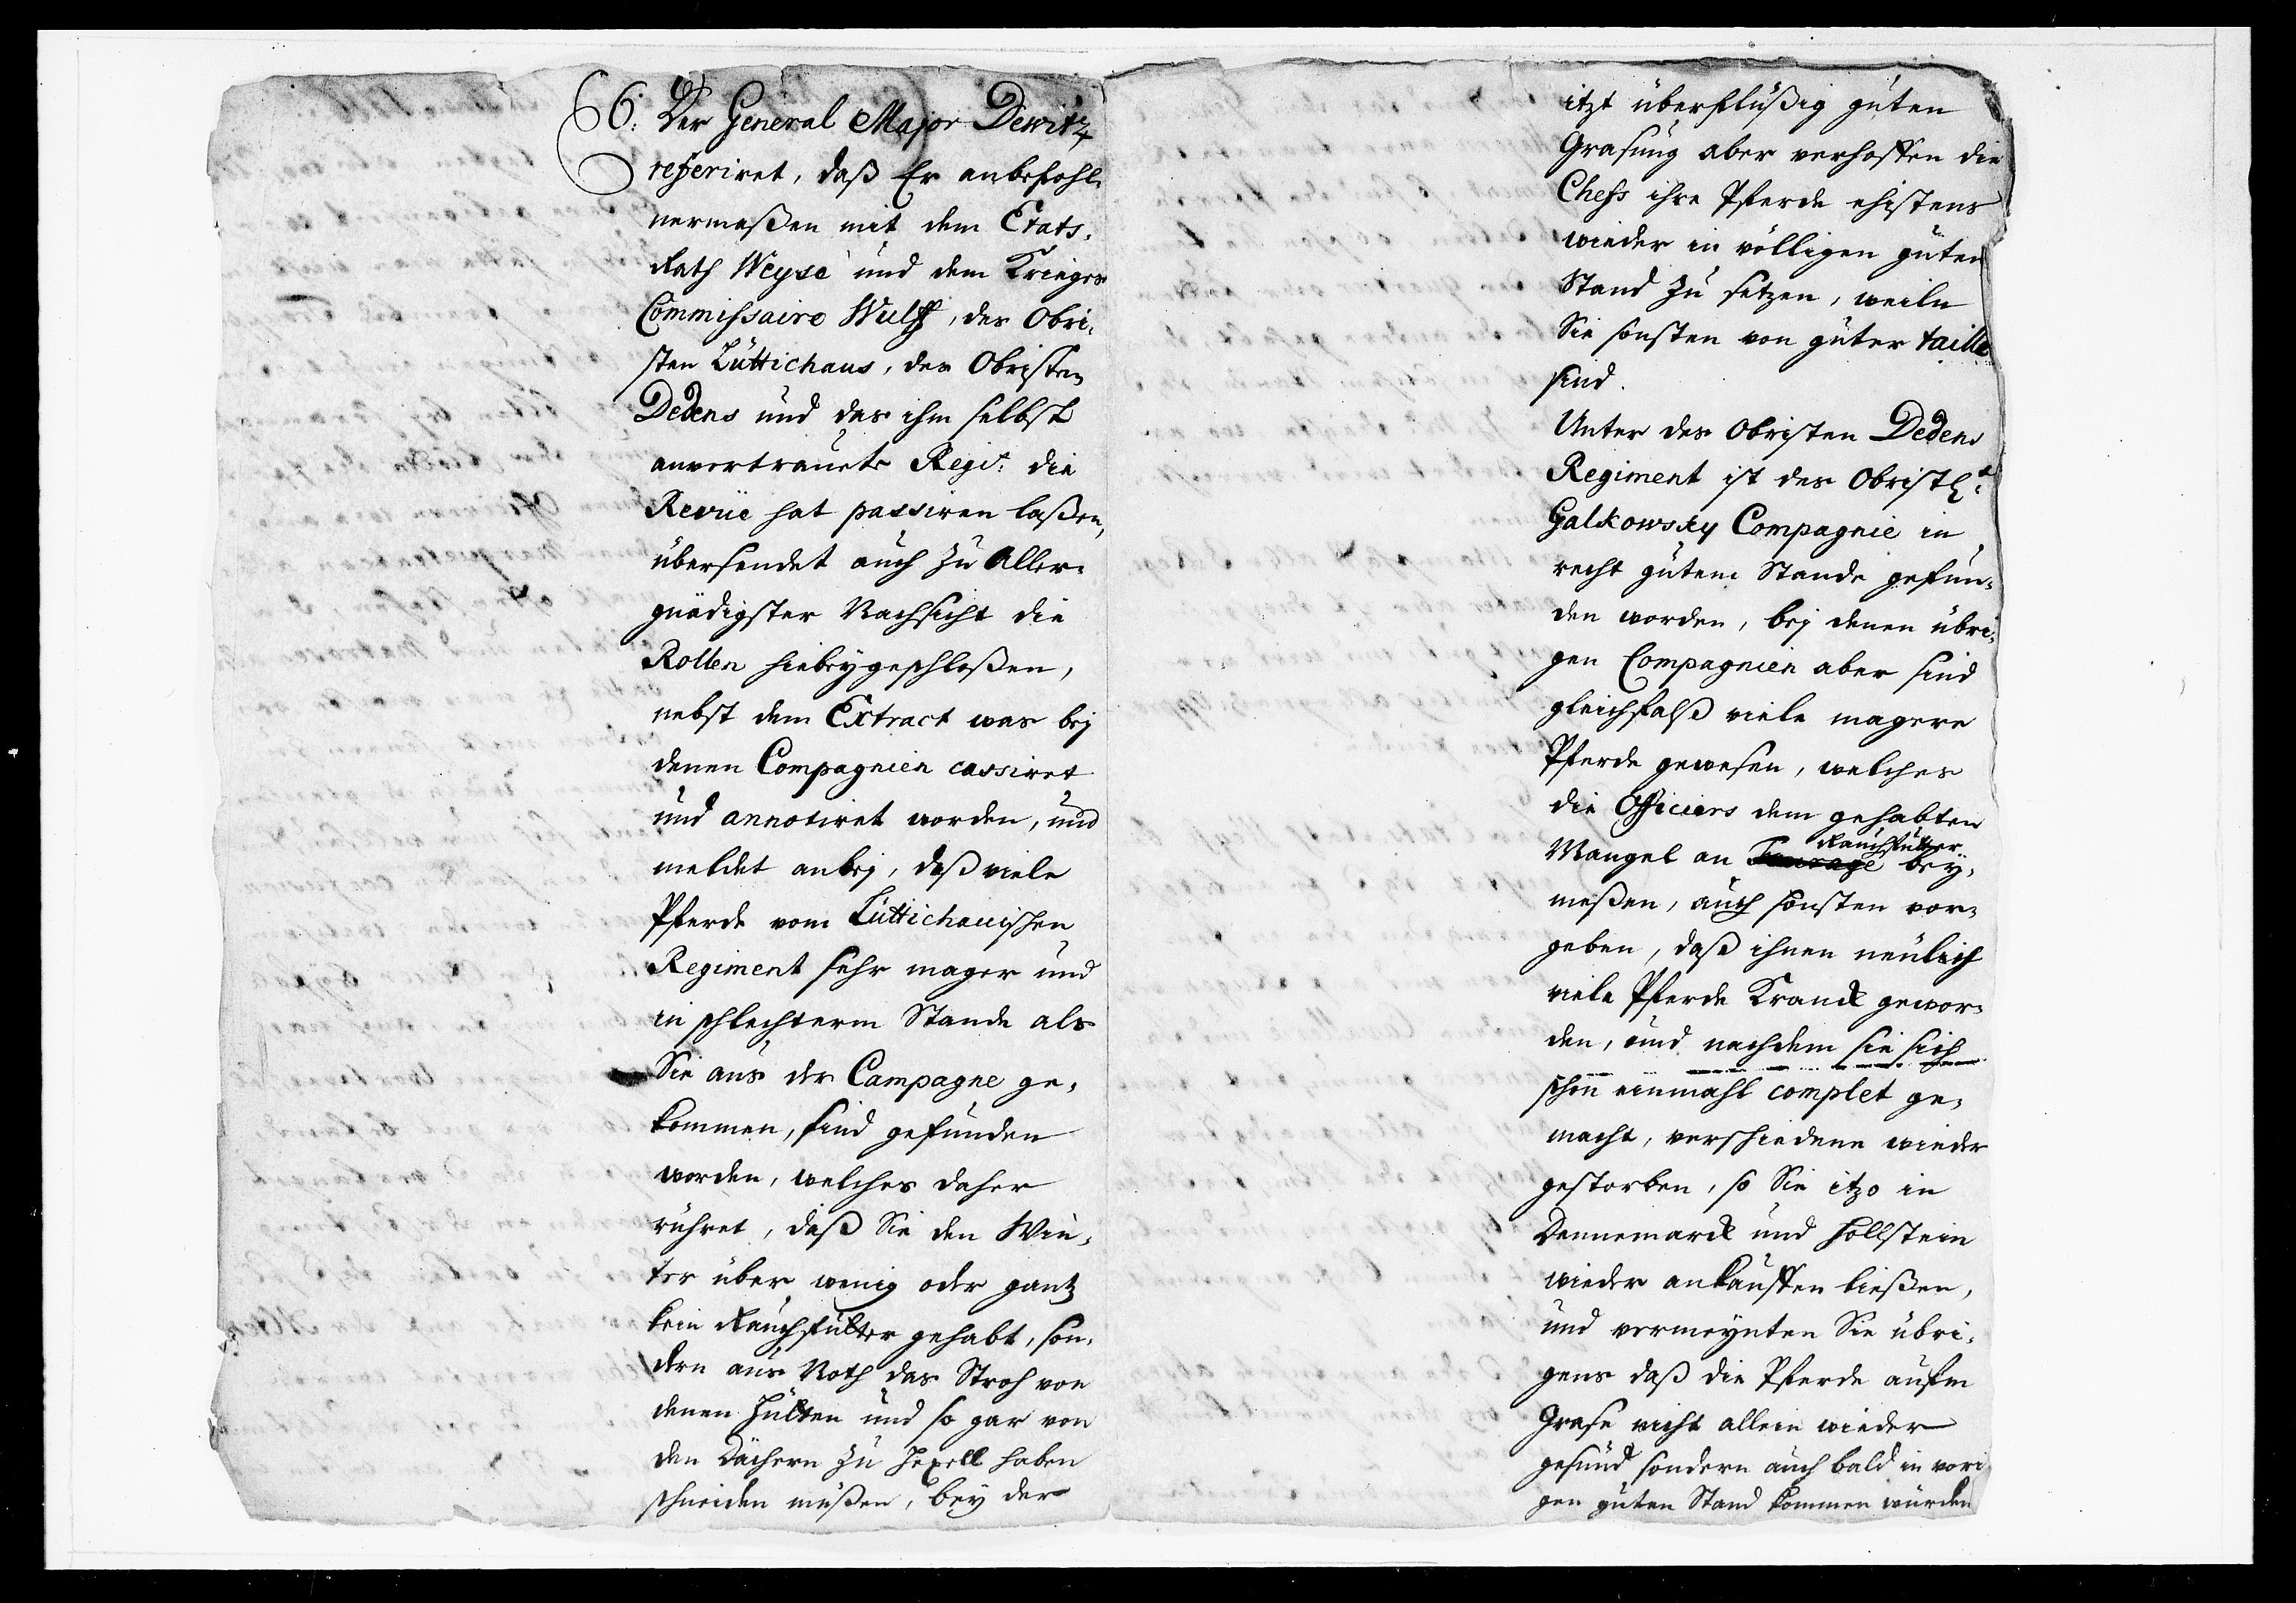 6. Der General Major Dewitz
referiret, daß Er anbefohl-
nermaßen mit dem Etats-
Rath Weyse und dem Krieges
Commissaire Wulff, des Obri-
sten Lüttichaus, des Obristen
Dedens und das ihm selbst
anvertrauete Regt: die
Revüe hat passiren laßen,
übersendet auch zu Aller-
gnädigster Nachsicht die
Rollen hiebeygeschloßen,
nebst dem Extract was bey
denen Compagnien cassiret
und annotiret worden, und
meldet anbey, daß viele
Pferde vom Lüttichauischen
Regiment sehr mager und
in schlechterm Stande als
Sie aus der Campagne ge-
kommen, sind gefunden
worden, welches daher
rühret, daß Sie den Win-
ter über wenig oder gantz
kein Rauchfutter gehabt, son-
dern aus Noth das Stroh von
denen Hütten und so gar von
den Dächern zu Hexell haben
schneiden müßen, bey der
itzt überflüßig guten
Grasung aber verhoffen die
Chefs ihre Pferde ehistens
wieder in völligen guten
Stand zu setzen, weiln
Sie sonsten von guter taille
sind.
Unter des Obristen Dedens
Regiment ist des Obristl:
Galkowsky Compagnie in
recht gutem Stande gefun-
den worden, bey denen übri-
gen Compagnien aber sind
gleichfalß viele magere
Pferde gewesen, welches
die Officiers dem gehabten
Mangel an Fourage Rauchfutter bey-
meßen, auch sonsten vor-
geben, daß ihnen neulich
viele Pferde Kranck gewor-
den, und nachdem sie sich
schon einmahl complet ge-
macht, verschiedene wieder
gestorben, so Sie itzo in
Dennemarck und Hollstein
wieder ankauffen ließen,
und vermeynten Sie übri-
gens daß die Pferde aufm
Grase nicht allein wieder
gesund sondern auch bald in vori-
gen guten Stand kommen würden